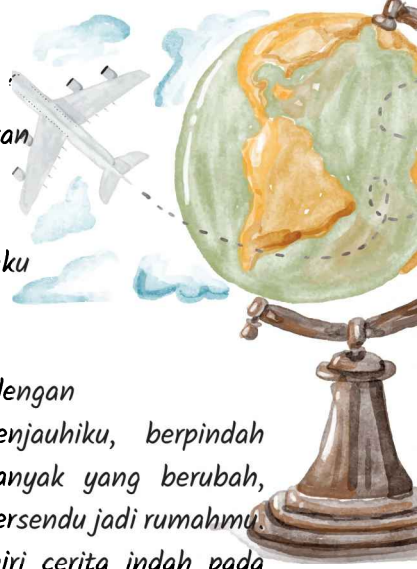 an
ku
dengan
enjauhiku, berpindah
anyak yang berubah,
ersendu jadi rumahmu.
hiri cerita indah pada